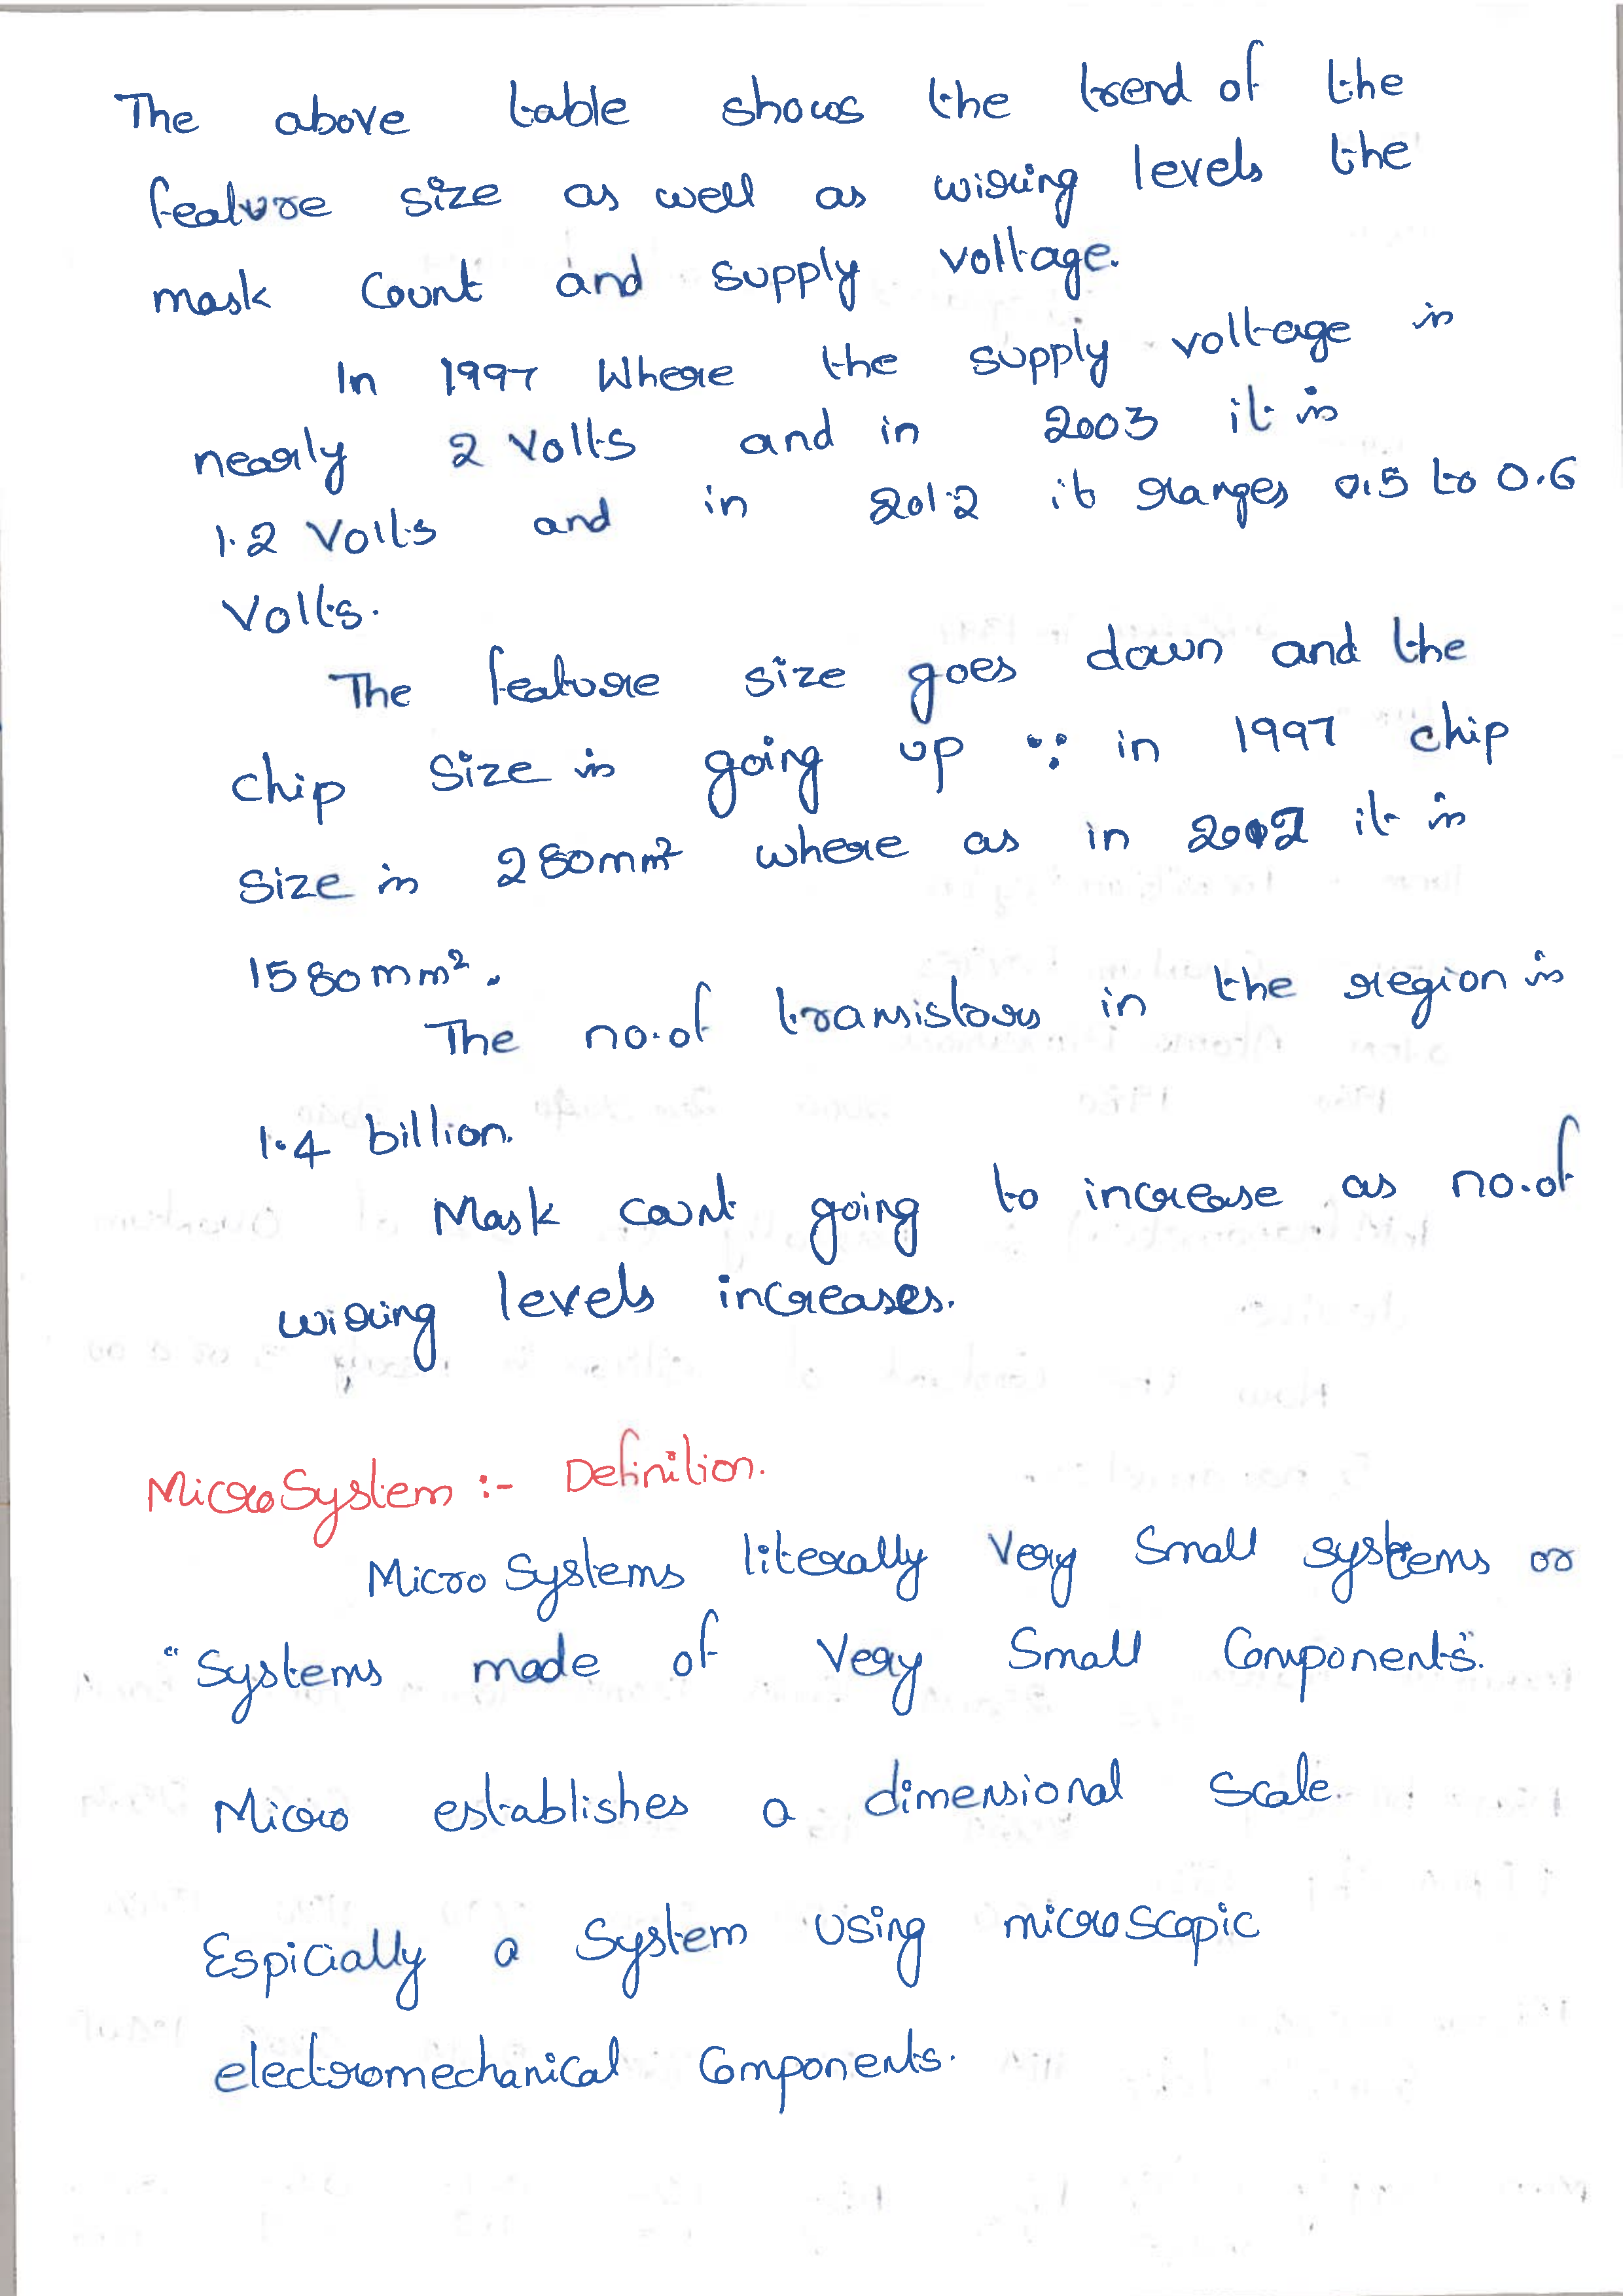 The above table shows the trend of the
feature size as well as wiring levels the
mask Count and supply voltage.
In 1997 Where the supply voltage is
nearly 2 Volts and in 2003 it is
1.2 Volts and in 2012 it ranges 0.5 to 0.6
Volts.
The feature size goes down and the
chip Size is going up ∵ in 1997 chip
Size is 280mm² where as in it is
1580mm².
The no.of transistors in the region is
1.4 billion.
Mask count going to increase as no.of
wiring levels increases.
MicroSystem :- Definition.
Micro Systems literally Very Small systems or
"Systems made of Very Small Components".
Micro establishes a dimensional Scale.
Espicially a System Using microscopic
electromechanical Components.